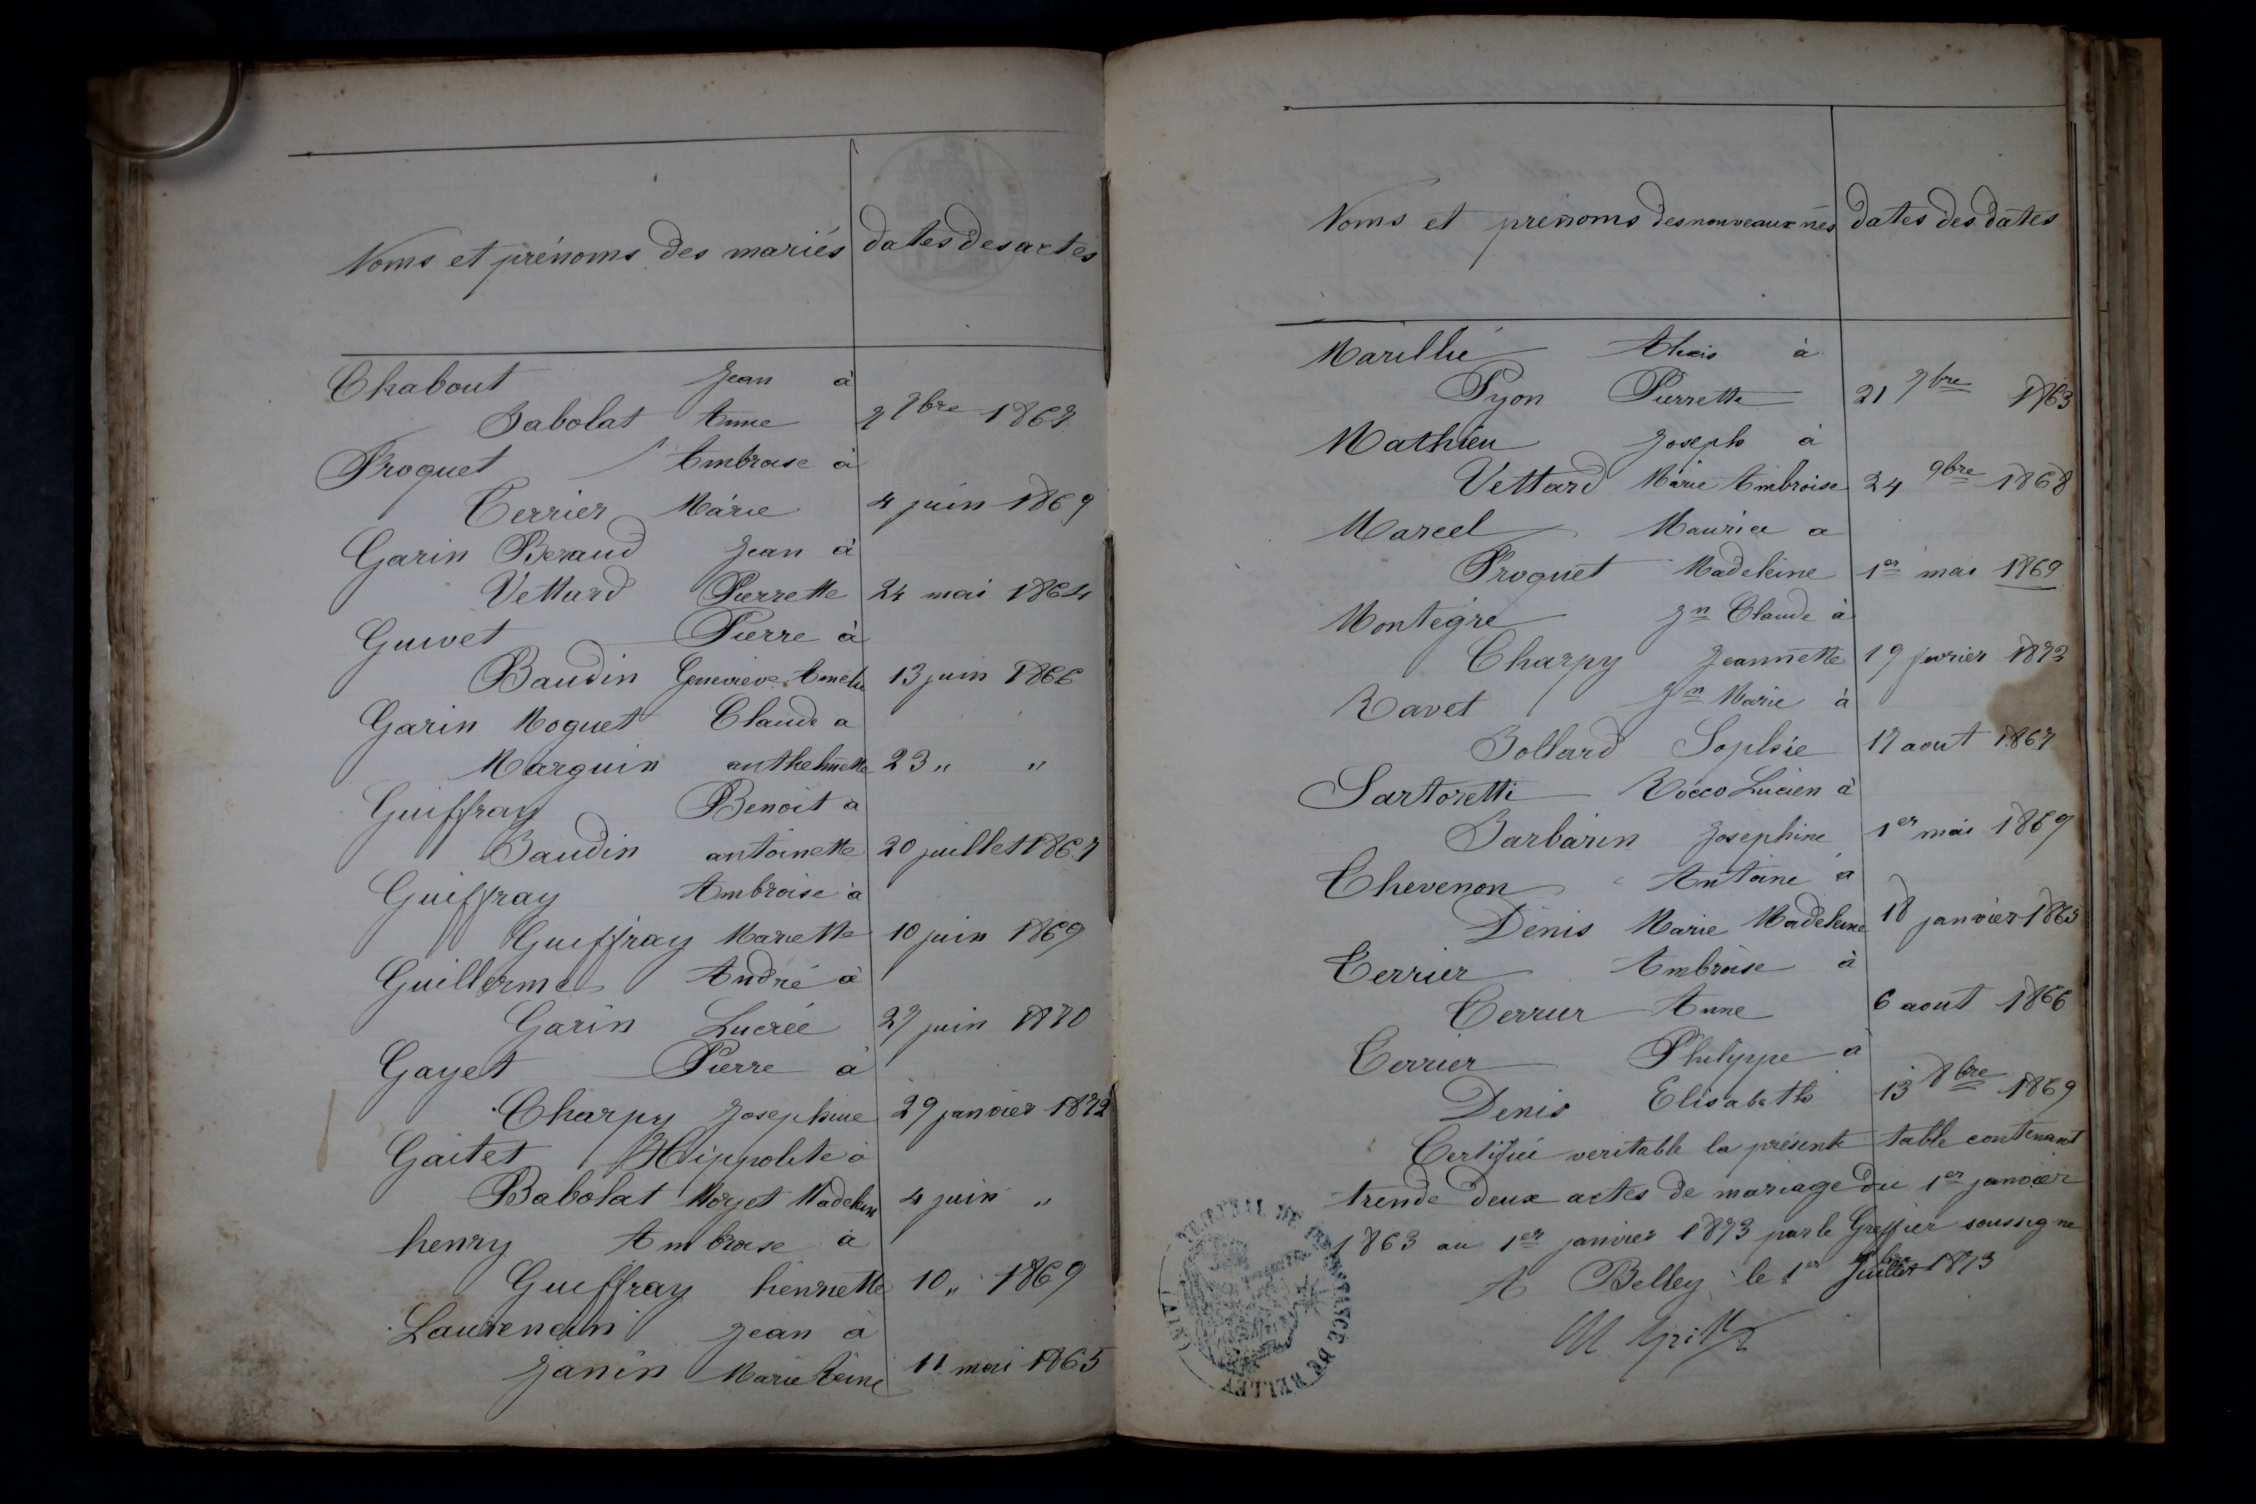 Noms et prénoms des mariés dates des actes
Chabout Jean à
Babolat Anne 2 7bre 1867
Froquet Ambroise à
Cerrier Marie 4 juin 1869
Garin Beraud Jean à
Vettard Pierrette 24 mai 1864
Guivet Pierre à
Baudin Geneviève Amelie 13 juin 1866
Garin Moguet Claude a
Marguin anthelmette 23 " "
Guiffray Benoit a
Baudin antoinette 20 juillet 1867
Guiffray Ambroise à
Guiffray Mariette 10 juin 1869
Guillerme André à
Garin Lucrée 27 juin 1870
Gayet Pierre à
Charpy Josephine 29 janvier 1872
Gaitet Hippolite à
Babolat Moryet Madelein 4 juin "
henry Ambroise à
Guiffray henriette 10 " 1869
Laurencin Jean à
Janin Marie 11 mai 1865
Noms et prénoms des nouveaux nés dates des dates
Marillié Alexis à
Pyon Pierrette 21 7bre 1863
Mathieu Joseph à
Vettard Marie Ambroise 24 9bre 1868
Marcel Maurice a
Froquet Madeleine 1er mai 1869
Montégre Jn Claude à
Charpy Jeannette 19 fevrier 1872
Ravet Jn Marie à
Bollard Sophie 17 aout 1867
Sartoretti Rocco Lucien à
Barbarin Josephine 1er mai 1869
Chevenon Antoine à
Denis Marie Madeleine 18 janvier 1863
Cerrier Ambroise à
Cerrier Anne 6 aout 1866
Cerrier Philippe a
Denis Elisabeth 13 8bre 1869
Certifié veritable la présente table contenant
trende deux actes de mariage du 1er janvier
1863 au 1er janvier 1873 par le Greffier soussigne
A Belley le 1er 1873
TRIBUNAL DE 1RE INSTANCE DE BELLEY (AIN)